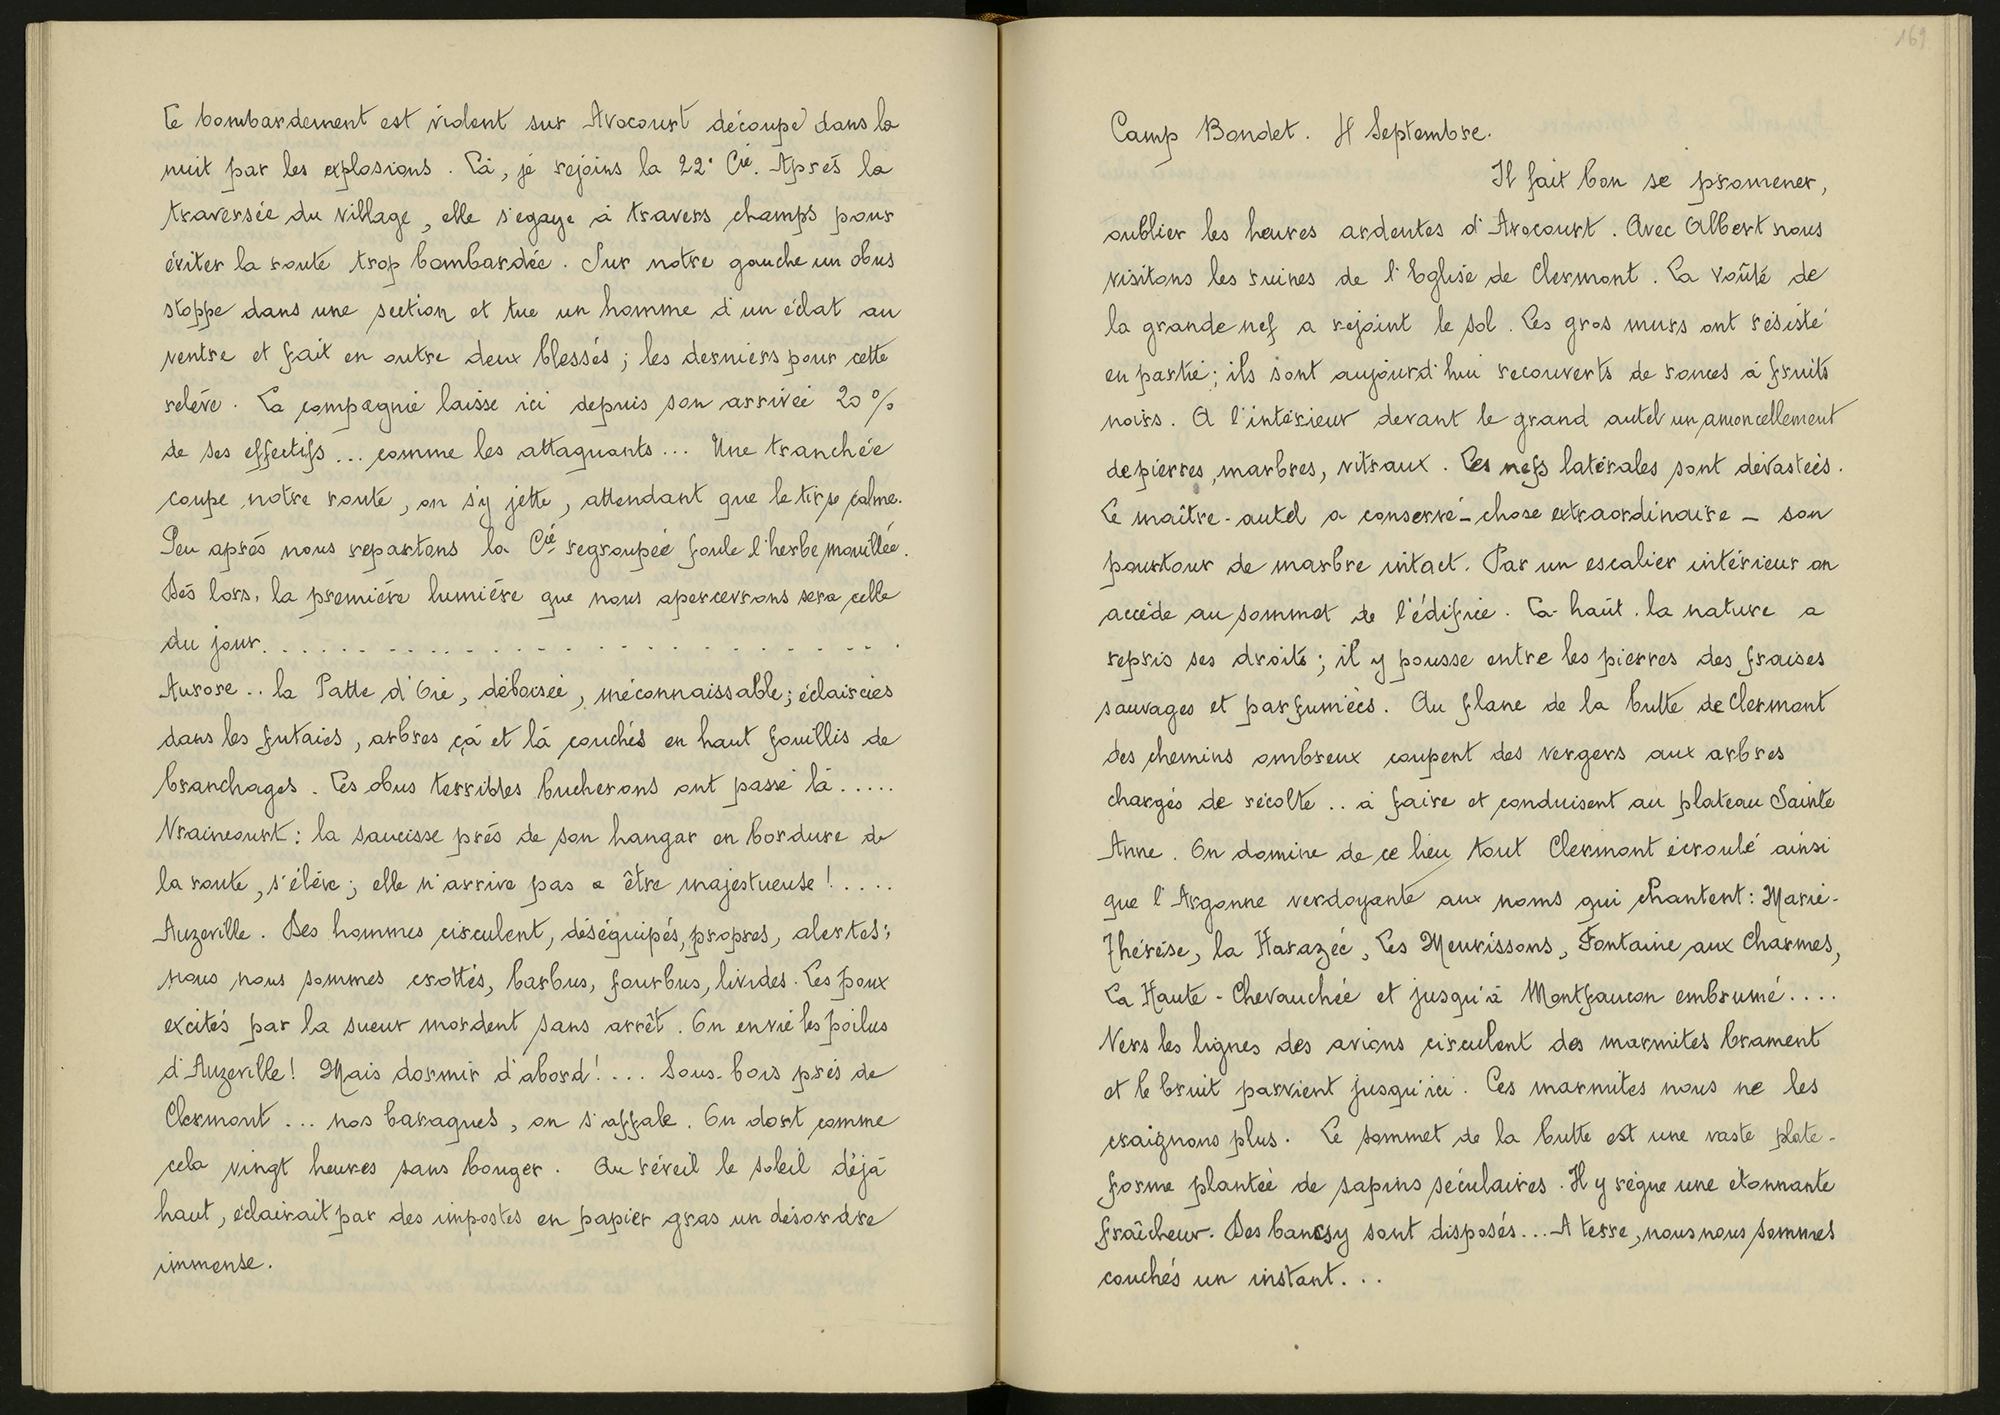 Le bombardement est violent sur Avocourt découpé dans la
nuit par les explosions. Là, je rejoins la 22e Cie. Après la
traversée du village, elle s'egaye à travers champs pour
éviter la route trop bombardée. Sur notre gauche un obus
stoppe dans une section et tue un homme d'un éclat au
ventre et fait en outre deux blessés ; les derniers pour cette
relève. La compagnie laisse ici depuis son arrivée 20 %
de ses effectifs... comme les attaquants... Une tranchée
coupe notre route, on s'y jette, attendant que le tir se calme.
Peu après nous repartons la Cie regroupée foule l'herbe mouillée.
Dès lors, la première lumière que nous apercevrons sera celle
du jour. . . . . . . . . . . . . . . . . . . . . . . . . .
Aurore.. la Patte d'Oie, déboisée, méconnaissable ; éclaircies
dans les futaies, arbres çà et là couchés en haut fouillis de
branchages. Les obus terribles bucherons ont passé là.....
Vraincourt : la saucisse près de son hangar en bordure de
la route, s'élève ; elle n'arrive pas a être majestueuse !....
Auzeville. Des hommes circulent, déséquipés, propres, alertes ;
nous nous sommes crottés, barbus, fourbus, livides. Les poux
excités par la sueur mordent sans arrêt. On envie les poilus
d'Auzeville ! Mais dormir d'abord !.... Sous-bois près de
Clermont... nos baraques, on s'affale. On dort comme
cela vingt heures sans bouger. Au réveil le soleil déjà
haut, éclairait par des impostes en papier gras un désordre
immense.
169
Camp Bondet. 4 Septembre.
Il fait bon se promener,
oublier les heures ardentes d'Avocourt. Avec Albert nous
visitons les ruines de l'Eglise de Clermont. La voûte de
la grande nef a rejoint le sol. Les gros murs ont résisté
en partie ; ils sont aujourd'hui recouverts de ronces à fruits
noirs. A l'intérieur devant le grand autel un amoncellement
de pierres, marbres, vitraux. Les nefs latérales sont dévastées.
Le maître-autel a conservé - chose extraordinaire - son
pourtour de marbre intact. Par un escalier intérieur on
accède au sommet de l'édifice. Là-haut. la nature a
repris ses droits ; il y pousse entre les pierres des fraises
sauvages et parfumées. Au flanc de la butte de Clermont
des chemins ombreux coupent des vergers aux arbres
chargés de récolte.. à faire et conduisent au plateau Sainte
Anne. On domine de ce lieu tout Clermont écroulé ainsi
que l'Argonne verdoyante aux noms qui chantent : Marie-
Thérèse, la Harazée, Les Meurissons, Fontaine aux Charmes,
La Haute-Chevauchée et jusqu'à Montfaucon embrumé....
Vers les lignes des avions circulent des marmites brament
et le bruit parvient jusqu'ici. Ces marmites nous ne les
craignons plus. Le sommet de la butte est une vaste plate-
forme plantée de sapins séculaires. Il y règne une étonnante
fraîcheur. Des bancs y sont disposés... A terre, nous nous sommes
couchés un instant...